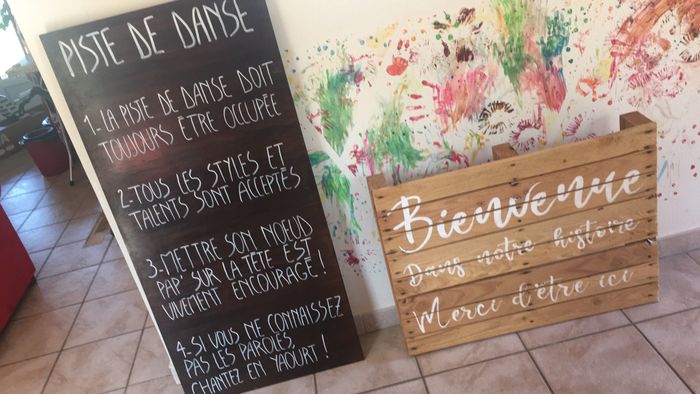 PISTE DE DANSE
1-LA PISTE DE DANSE DOIT
TOUJOURS ÊTRE OCCUPÉE
2-TOUS LES STYLES ET
TALENTS SONT ACCEPTÉS
3-METTRE SON NOEUD
PAP' SUR LA TÊTE EST
VIVEMENT ENCOURAGÉ !
4-SI VOUS NE CONNAISSEZ
PAS LES PAROLES,
CHANTEZ EN YAOURT !
Bienvenue
Dans notre histoire
Merci d'être ici